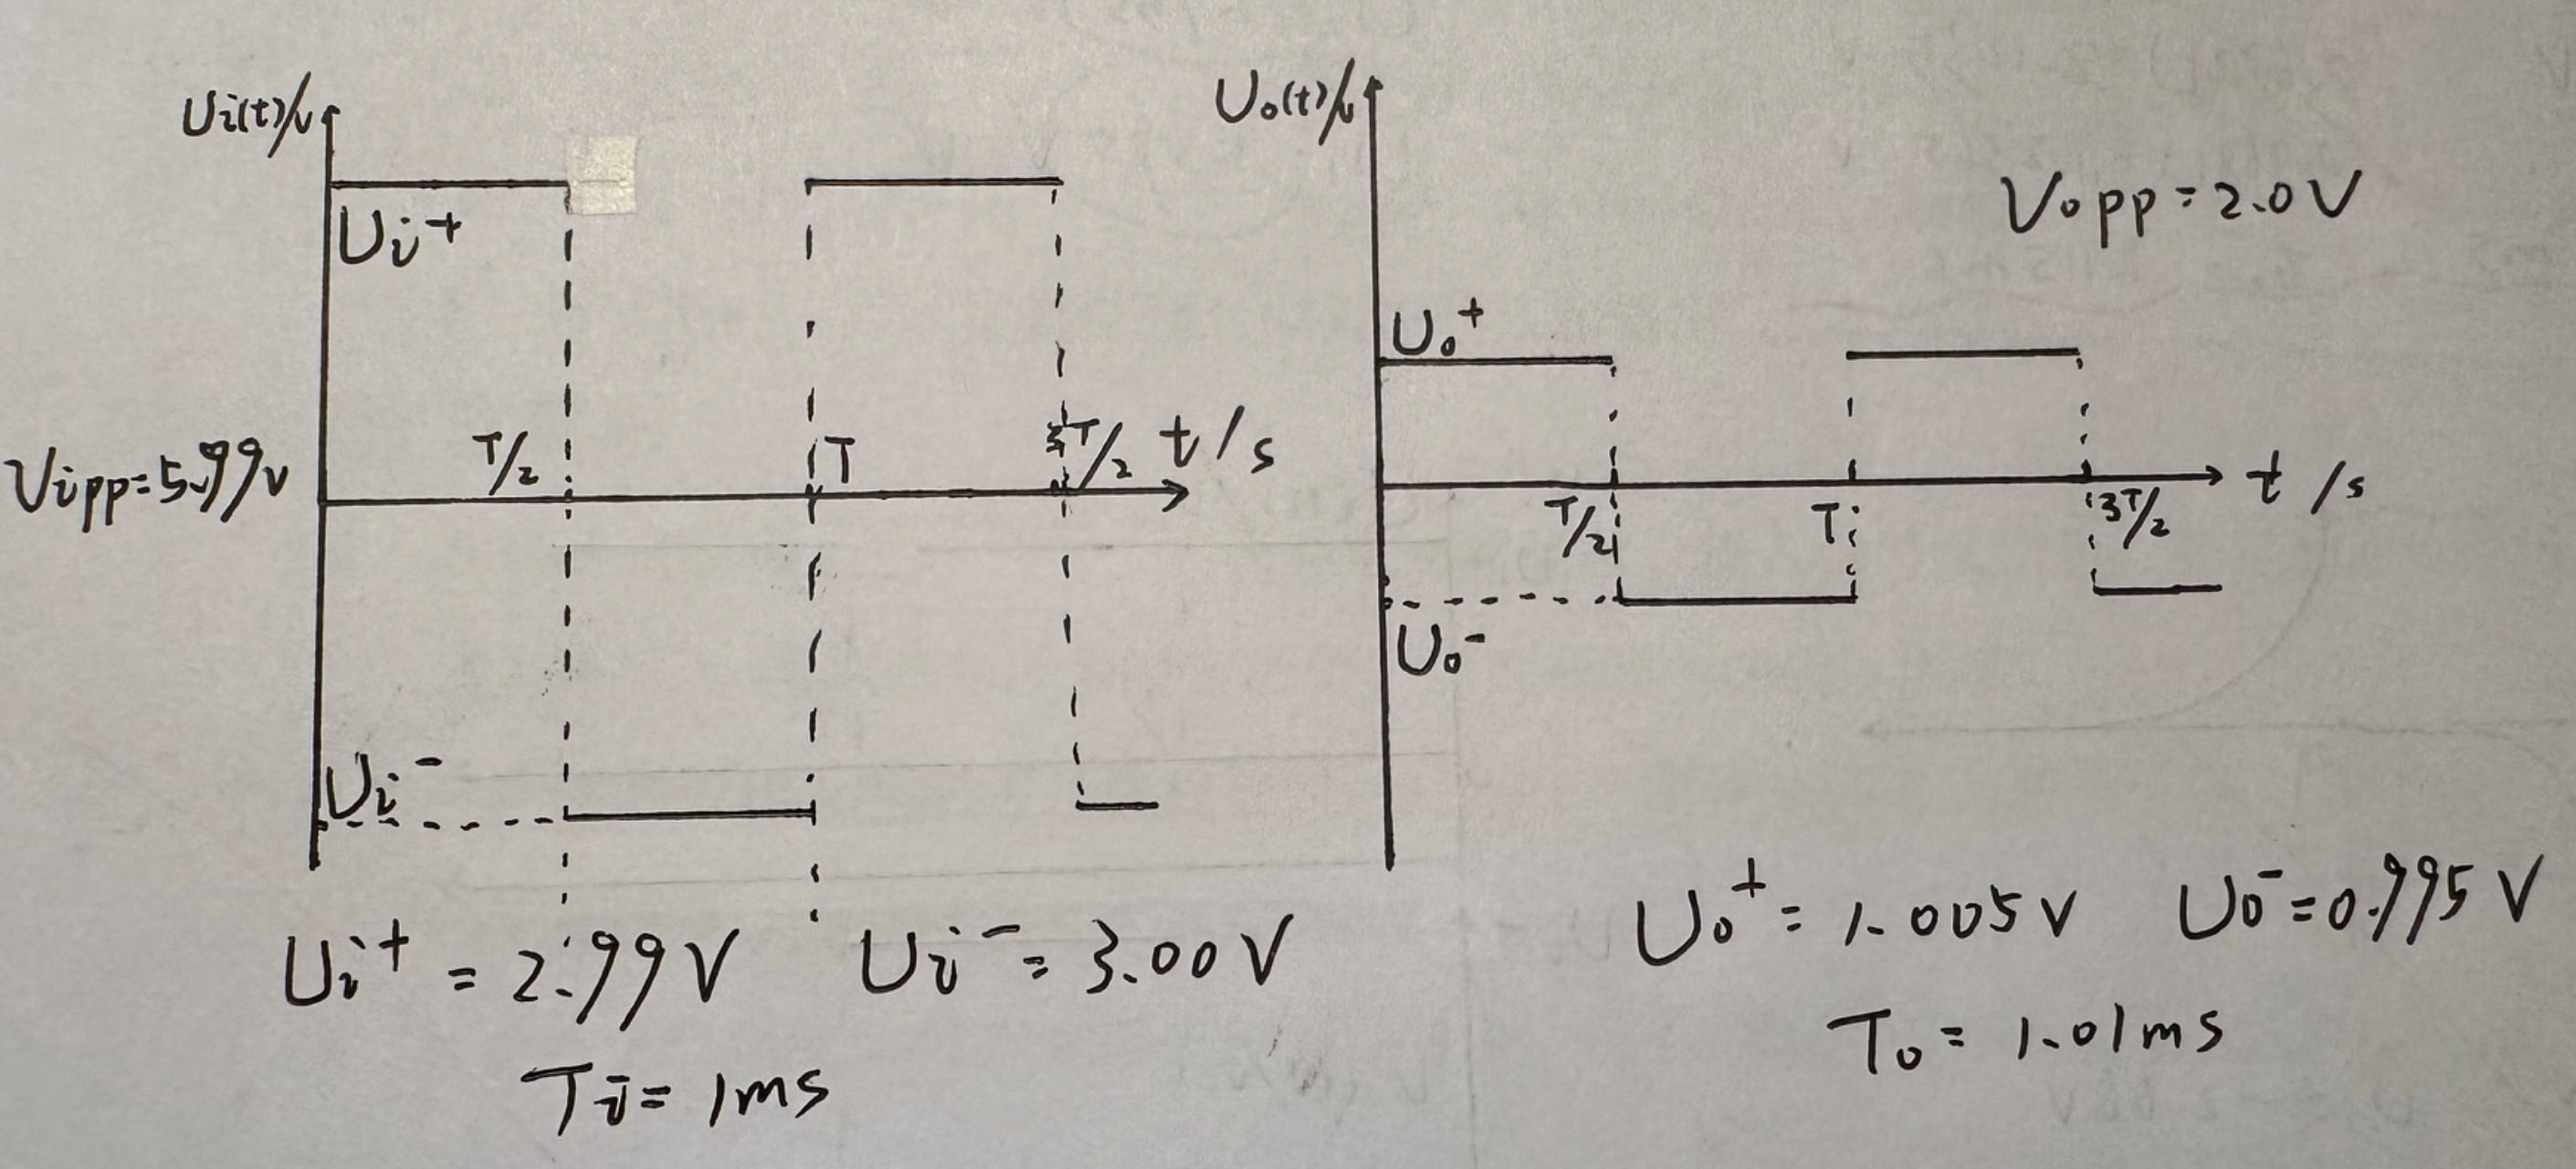 Ui(t)/v
Ui+
T/2
T
3T/2
t/s
Vipp=5.99v
Ui-
Ui+ = 2.99V
Ui- = 3.00V
Ti= 1ms
Uo(t)/v
Vopp=2.0V
Uo+
T/2
T
3T/2
t/s
Uo-
Uo+ = 1.005V
Uo- = 0.995V
To= 1.01ms